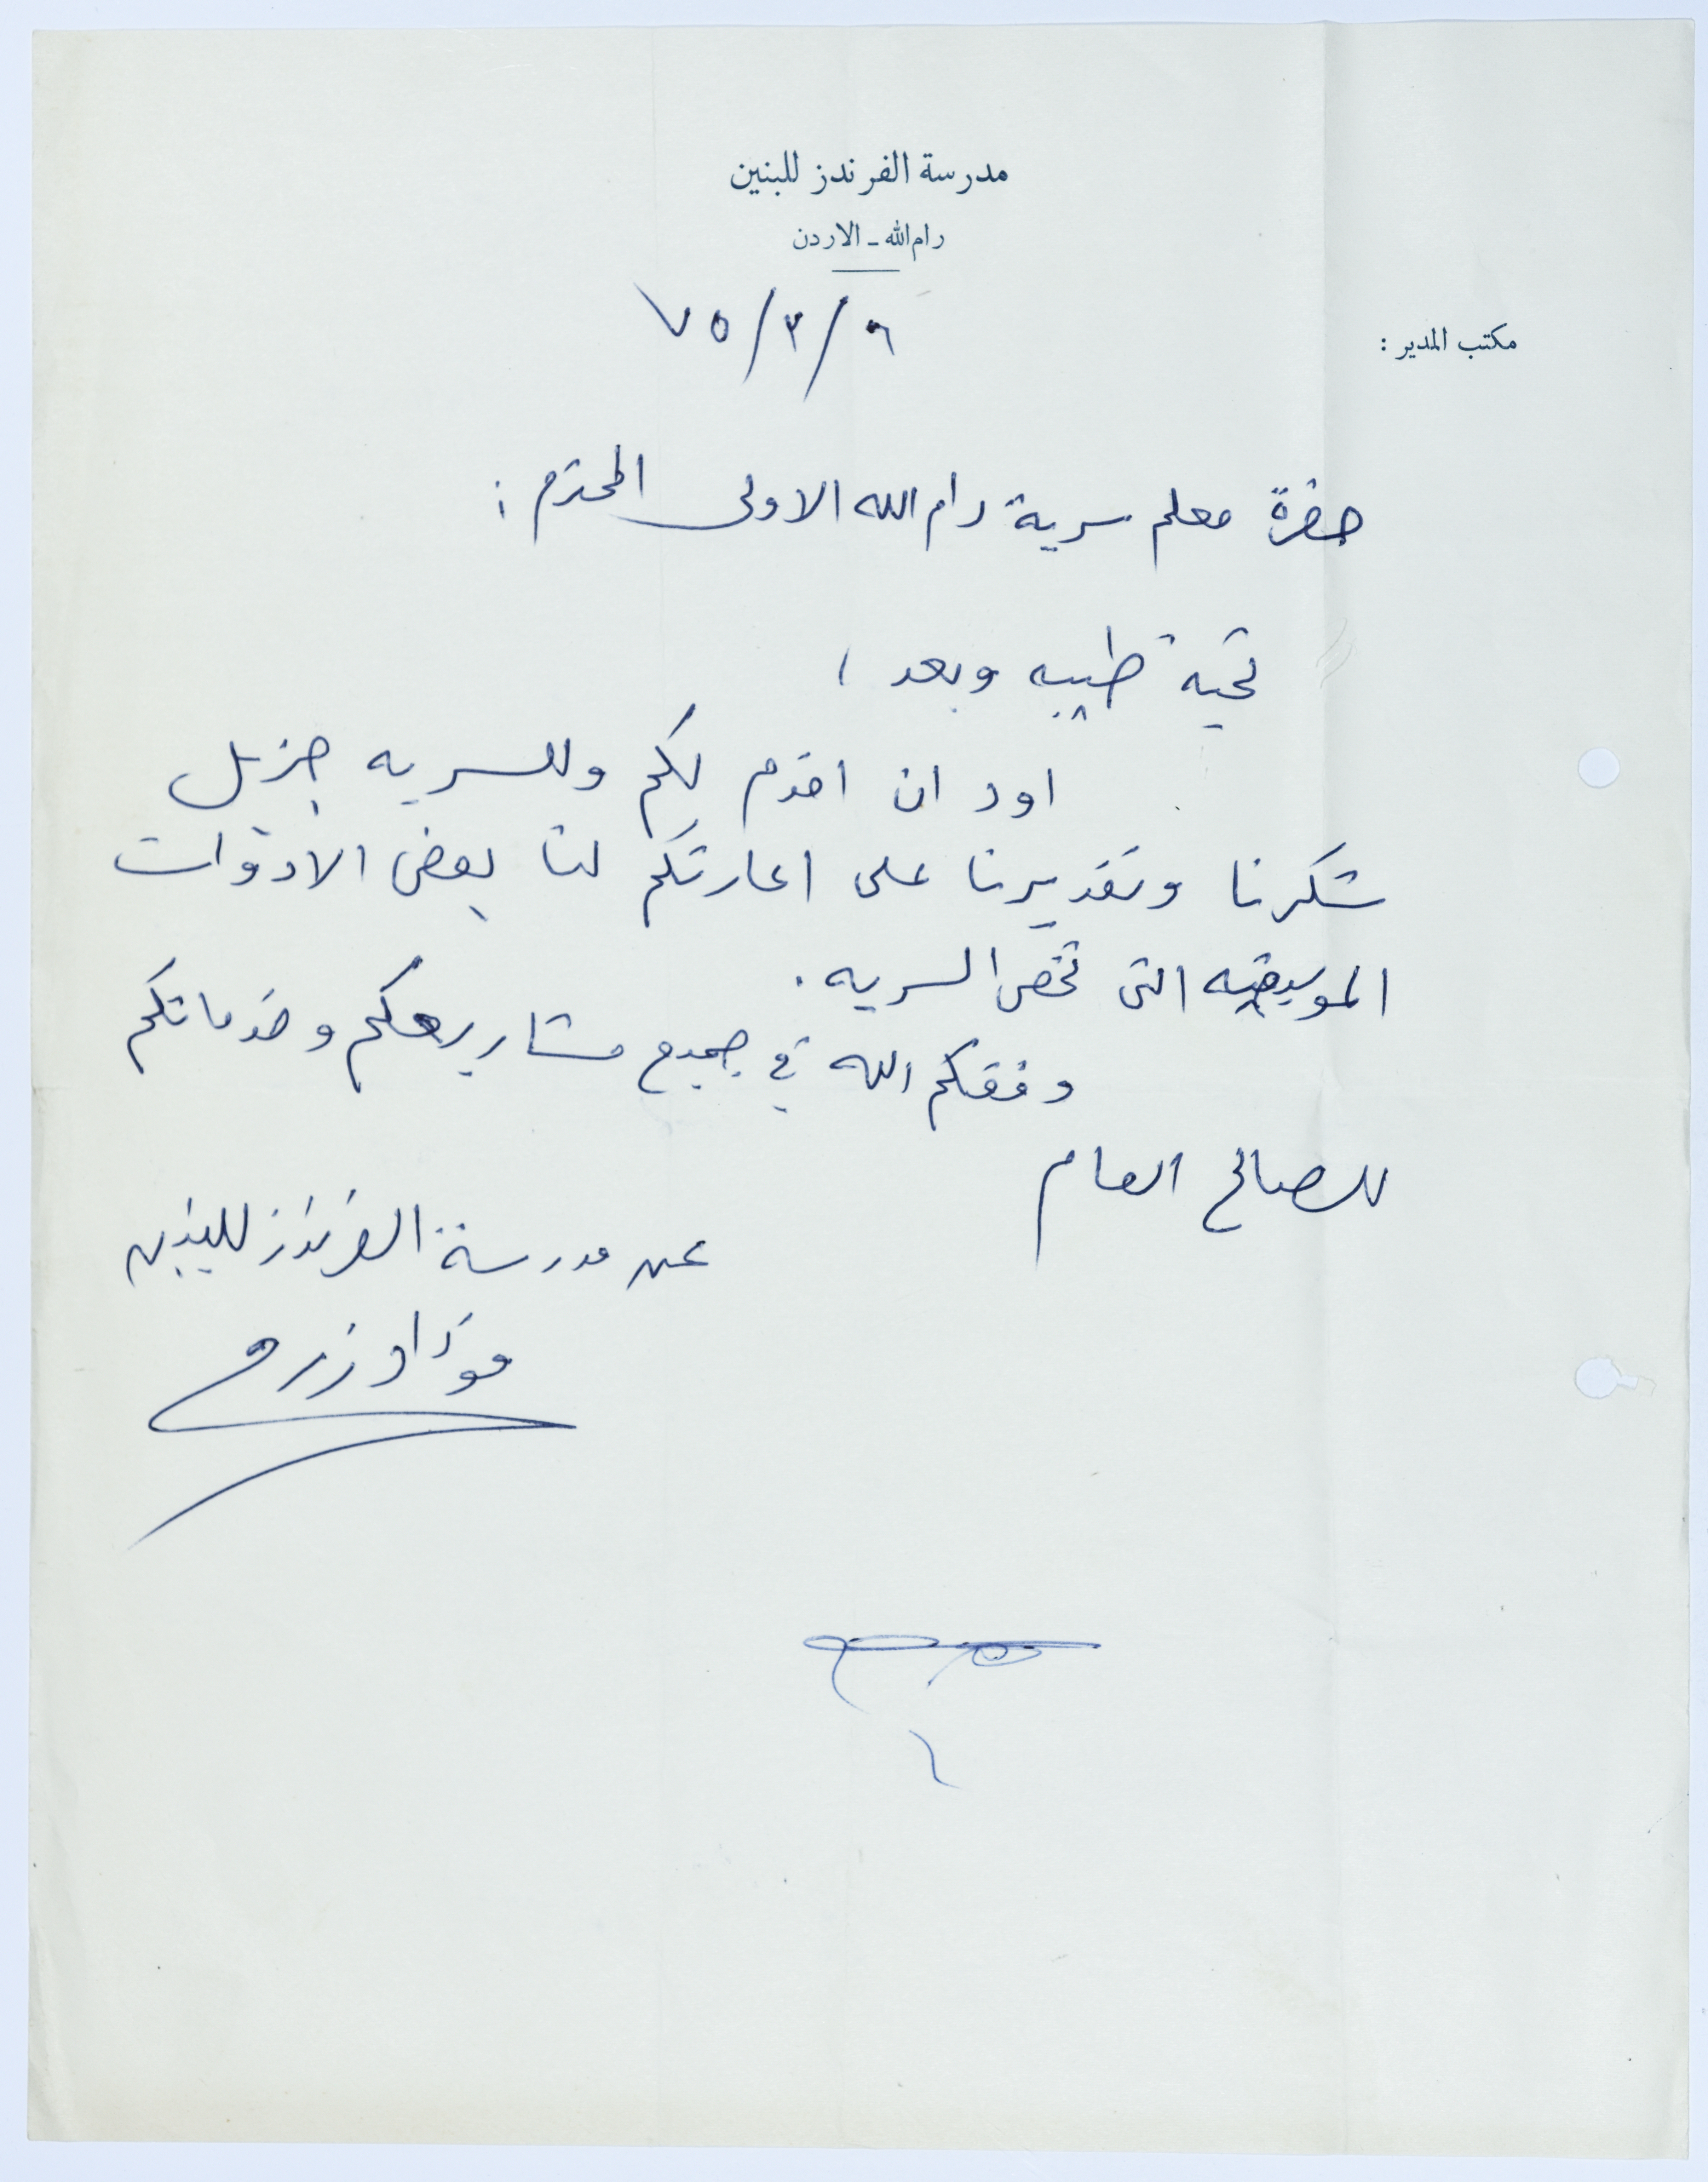 مدرسة الفرندز للبنين
رام الله - الاردن
٧٥/٣/٦
مكتب المدير :
حضرة معلم سرية رام الله الاولى المحترم :
تحية طيبه وبعد ،
اود ان اقدم لكم وللسريه جزيل
شكرنا وتقديرنا على اعارتكم لنا بعض الادوات
الموسيقيه التي تخص السريه .
وفقكم الله في جميع مشاريعكم وخدماتكم
للصالح العام
عن مدرسة الفرندز للبنين
فؤاد زرو